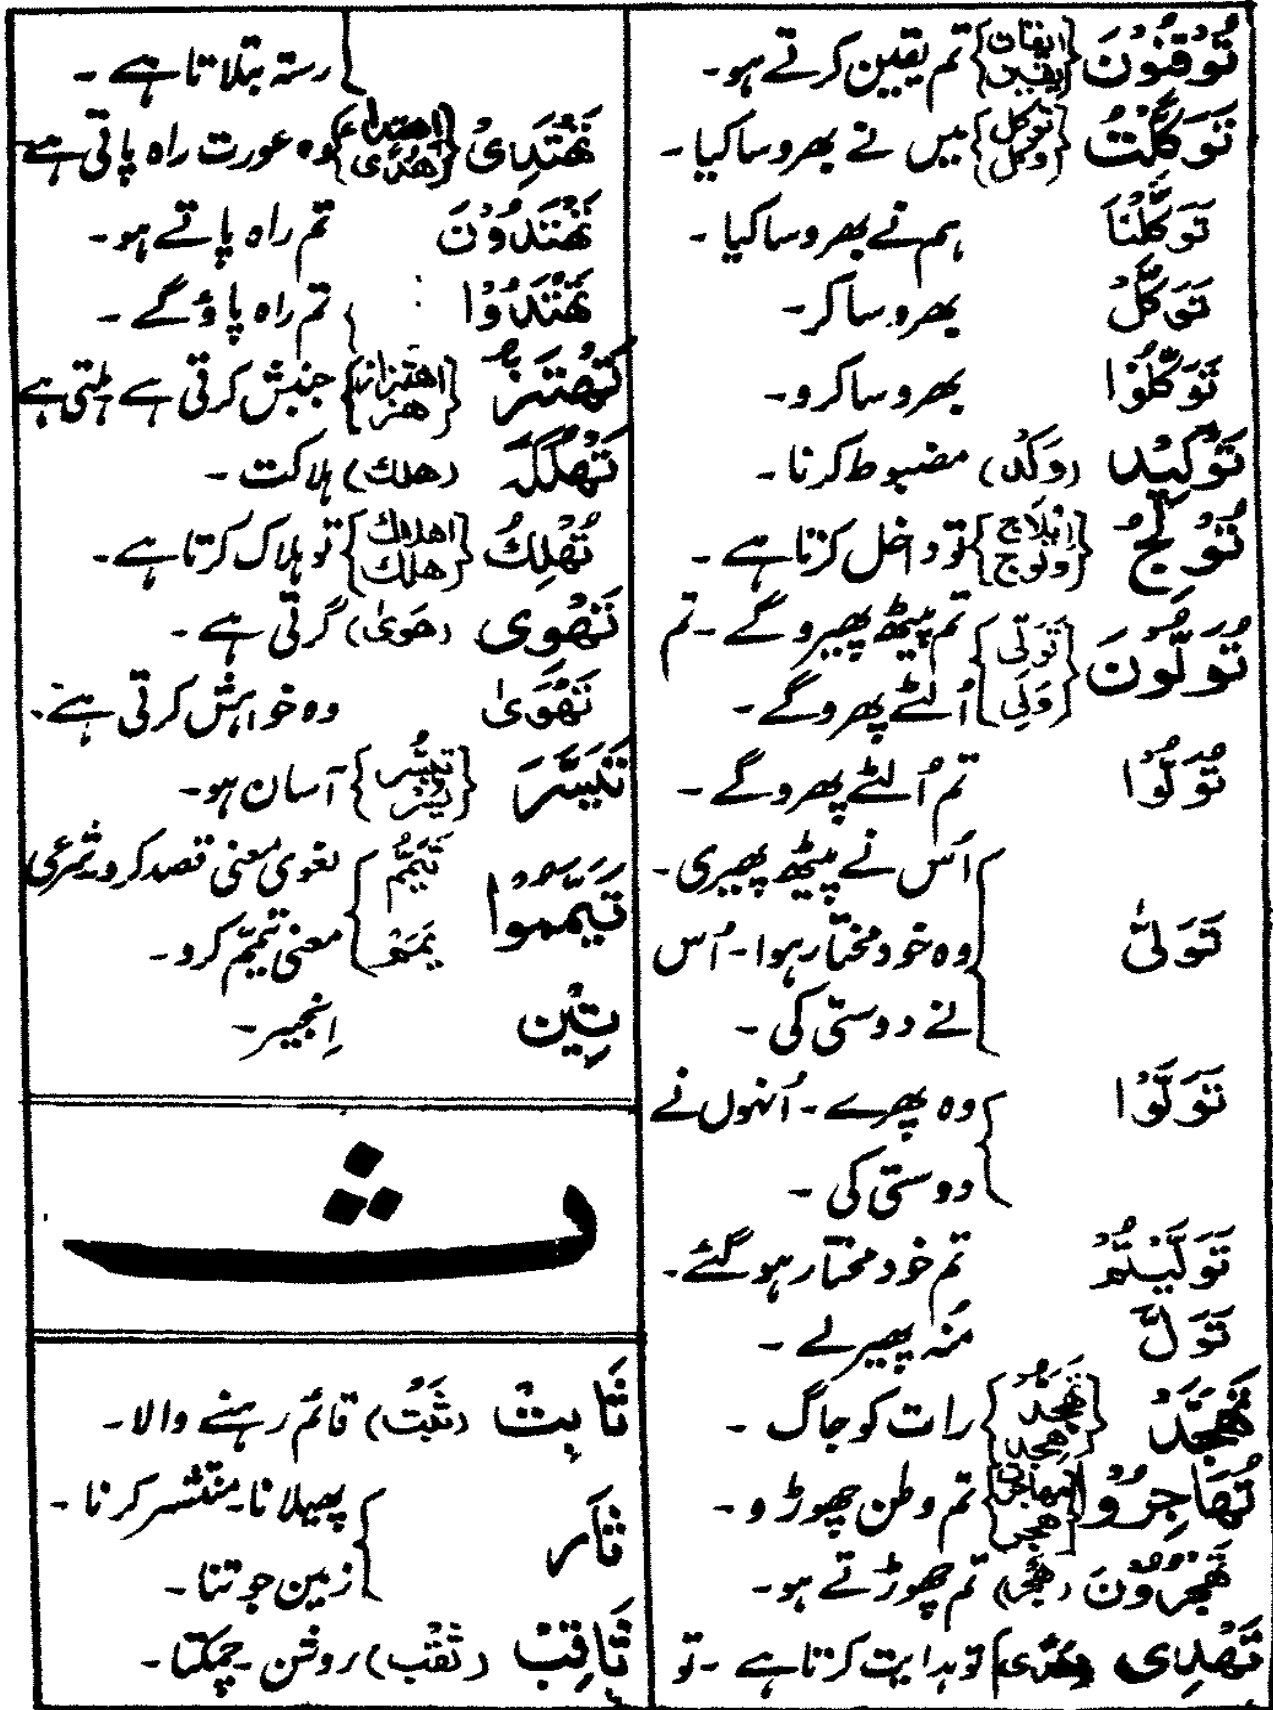 تُوْقِنُوْنَ {ایقان یقین} تم یقین کرتے ہو۔
تَوَكَّلْتُ {توکل وکل} میں نے بھروسا کیا۔
تَوَكَّلْنَا ہم نے بھروسا کیا۔
تَوَكَّلْ بھروسا کر۔
تَوَكَّلُوْا بھروسا کرو۔
تَوْكِيْد (وَكْد) مضبوط کرنا۔
تُوْلِجُ {اِیْلاج ولوج} تو داخل کرتا ہے۔
تُوَلُّوْنَ {تَوَلّی وَلِی} تم پیٹھ پھیرو گے۔ تم
اُلٹے پھرو گے۔
تُوَلُّوْا تم اُلٹے پھرو گے۔
تَوَلّٰی اُس نے پیٹھ پھیری۔
وہ خود مختار ہوا۔ اُس
نے دوستی کی۔
تَوَلَّوْا وہ پھرے۔ اُنہوں نے
دوستی کی۔
تَوَلَّيْتُمْ تم خود مختار ہو گئے۔
تَوَلَّ مُنہ پھیر لے۔
تَهَجَّدْ {تهجد هجد} رات کو جاگ۔
تُهَاجِرُوْا تم وطن چھوڑو۔
تَهْجُرُوْنَ (هجر) تم چھوڑتے ہو۔
تَهْدِی (هدی) تو ہدایت کرتا ہے۔ تو
رستہ بتلاتا ہے۔
تَهْتَدِیْ {اهتداء هدی} وہ عورت راہ پاتی ہے
تَهْتَدُوْنَ تم راہ پاتے ہو۔
تَهْتَدُوْا تم راہ پاؤ گے۔
تَهْتَزُّ {اهتزاز هز} جنبش کرتی ہے۔ ہلتی ہے
تَهْلُكَہ (هلك) ہلاکت۔
تُهْلِكُ {اهلاك هلك} تو ہلاک کرتا ہے۔
تَهْوِی (هَوٰی) گرتی ہے۔
تَهْوَیٰ وہ خواہش کرتی ہے۔
تَيَسَّرَ {تیسر یسر} آسان ہو۔
تَيَمَّمُوْا {تیمم یمم} لغوی معنی قصد کرو۔ شرعی
معنی تیمّم کرو۔
تِيْن اِنجیر۔
ث
ثَابِتٌ (ثَبُتَ) قائم رہنے والا۔
ثَار پھیلانا۔ منتشر کرنا۔
زمین جوتنا۔
ثَاقِبْ (ثقب) روشن۔ چمکتا۔